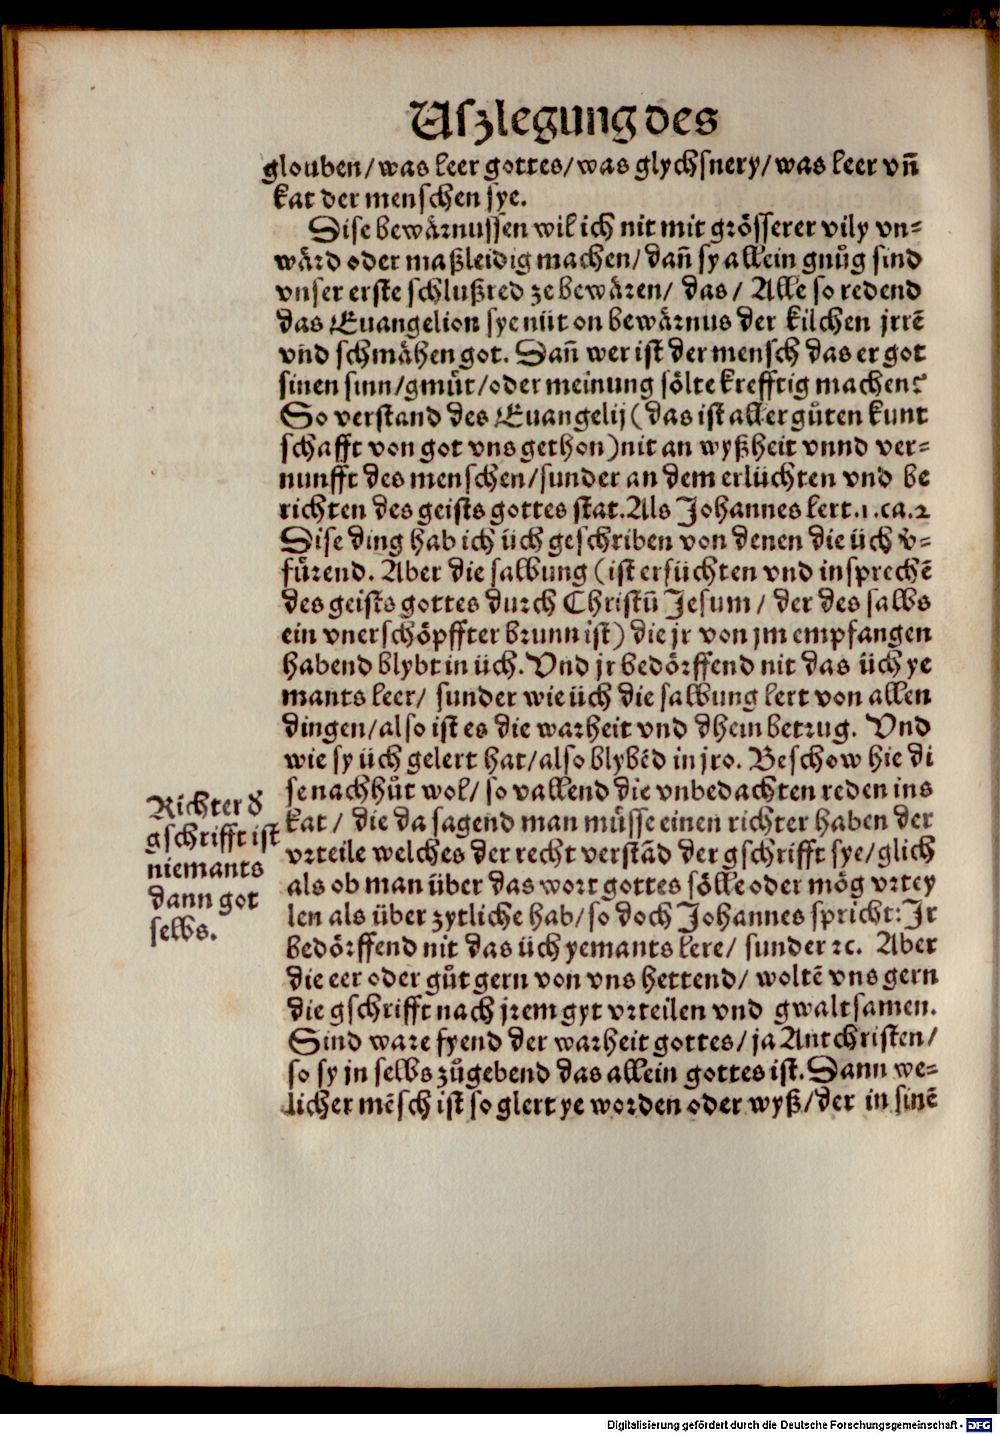 Uſzlegung des
glouben/was leer gottes/was glychſnery/was leer vñ
kat der menſchen ſye.
Diſe bewärnuſſen wil ich nit mit gröſſerer vily vn⸗
wärd oder maßleidig machen/ dañ ſy allein gnůg ſind
vnſer erſte ſchlußred ze bewären/ das/ Alle ſo redend
das Euangelion ſye nüt on bewärnus der kilchen jrrẽ
vnd ſchmähen got. Dañ wer iſt der menſch das er got
ſinen ſinn/gmůt/oder meinung ſölte krefftig machen?
So verſtand des Euangelij (das iſt aller gůten kunt
ſchafft von got vns gethon) nit an wyßheit vnnd ver⸗
nunfft des menſchen/ſunder an dem erlüchten vnd be
richten des geiſts gottes ſtat. Als Johannes lert .1.ca.2
Diſe ding hab ich üch geſchriben von denen die üch v̈⸗
fürend. Aber die ſalbung (iſt erfüchten vnd inſprechẽ
des geiſts gottes durch Chriſtũ Jeſum/ der des ſalbs
ein vnerſchöpffter brunn iſt) die jr von jm empfangen
habend blybt in üch. Vnd jr bedörffend nit das üch ye
mants leer/ ſunder wie üch die ſalbung lert von allen
dingen/alſo iſt es die warheit vnd dhein betrug. Vnd
wie ſy üch gelert hat/alſo blybẽd in jro. Beſchow hie di
ſe nachhůt wol/ ſo vallend die vnbedachten reden ins
kat/ die da ſagend man müſſe einen richter haben der
vrteile welches der recht verſtãd der gſchrifft ſye/glich
als ob man über das wort gottes ſölle oder mög vrtey
len als über zytliche hab/ſo doch Johannes ſpricht: Jr
bedörffend nit das üch yemants lere/ ſunder ꝛc. Aber
die eer oder gůt gern von vns hettend/ woltẽ vns gern
die gſchrifft nach jrem gyt vrteilen vnd gwaltſamen.
Sind ware fyend der warheit gottes/ ja Antchriſten/
ſo ſy jn ſelbs zůgebend das allein gottes iſt. Dann we⸗
licher mẽſch iſt ſo glert ye worden oder wyß/der in ſinẽ
Richter d̕
gſchrifft iſt
niemants
dann got
ſelbs.
Digitalisierung gefördert durch die Deutsche Forschungsgemeinschaft - DFG